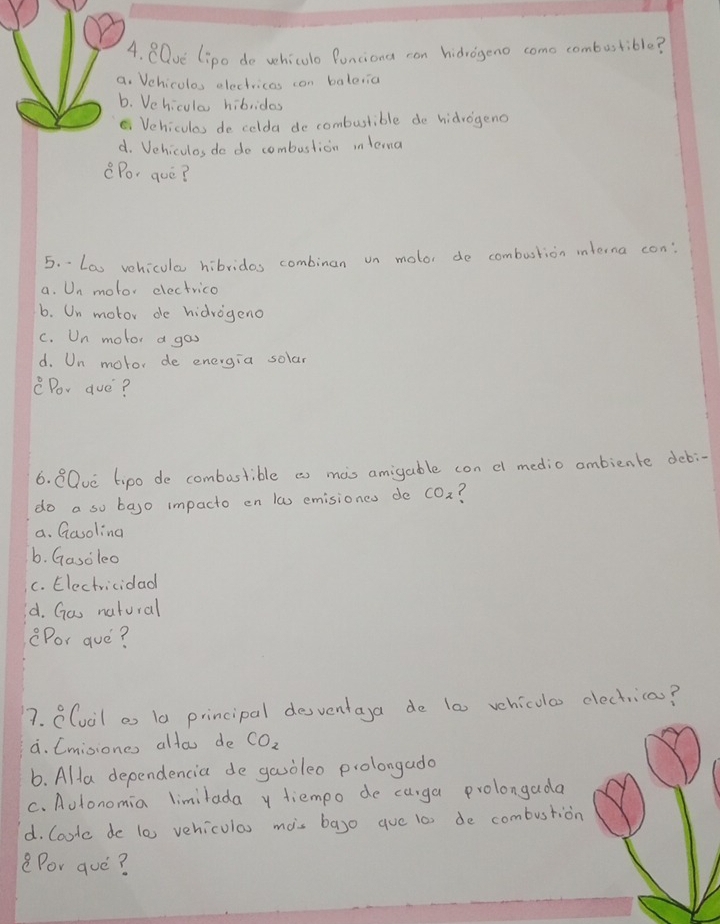 4. ¿Qué tipo de vehiculo funciona con hidrógeno como combustible?
a. Vehiculos electricos con bateria
b. Vehiculos hibridos
c. Vehiculos de celda de combustible de hidrógeno
d. Vehiculos de de combustión interna
¿Por qué?
5.- Los vehiculos hibridos combinan un motor de combustión interna con:
a. Un motor electrico
b. Un motor de hidrógeno
c. Un motor a gas
d. Un motor de energia solar
¿Por que?
6. ¿Qué tipo de combustible es más amigable con el medio ambiente debi-
do a su bajo impacto en las emisiones de CO2?
a. Gasolina
b. Gasóleo
c. Electricidad
d. Gas natural
¿Por qué?
7. ¿Cuál es la principal desventaja de los vehículos electricos?
a. Emisiones altas de CO2
b. Alta dependencia de gasóleo prolongado
c. Autonomia limitada y tiempo de carga prolongada
d. Coste de los vehículos más bajo que los de combustión
¿Por qué?